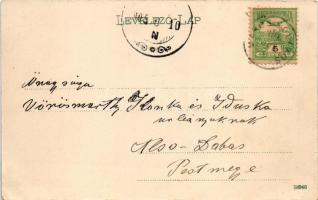 LEVELEZŐ-LAP
10
N
5
Önagysága
Vörösmarthy Ilonka és Iduska
urleányoknak
Alsó-Dabas
Pestmegye